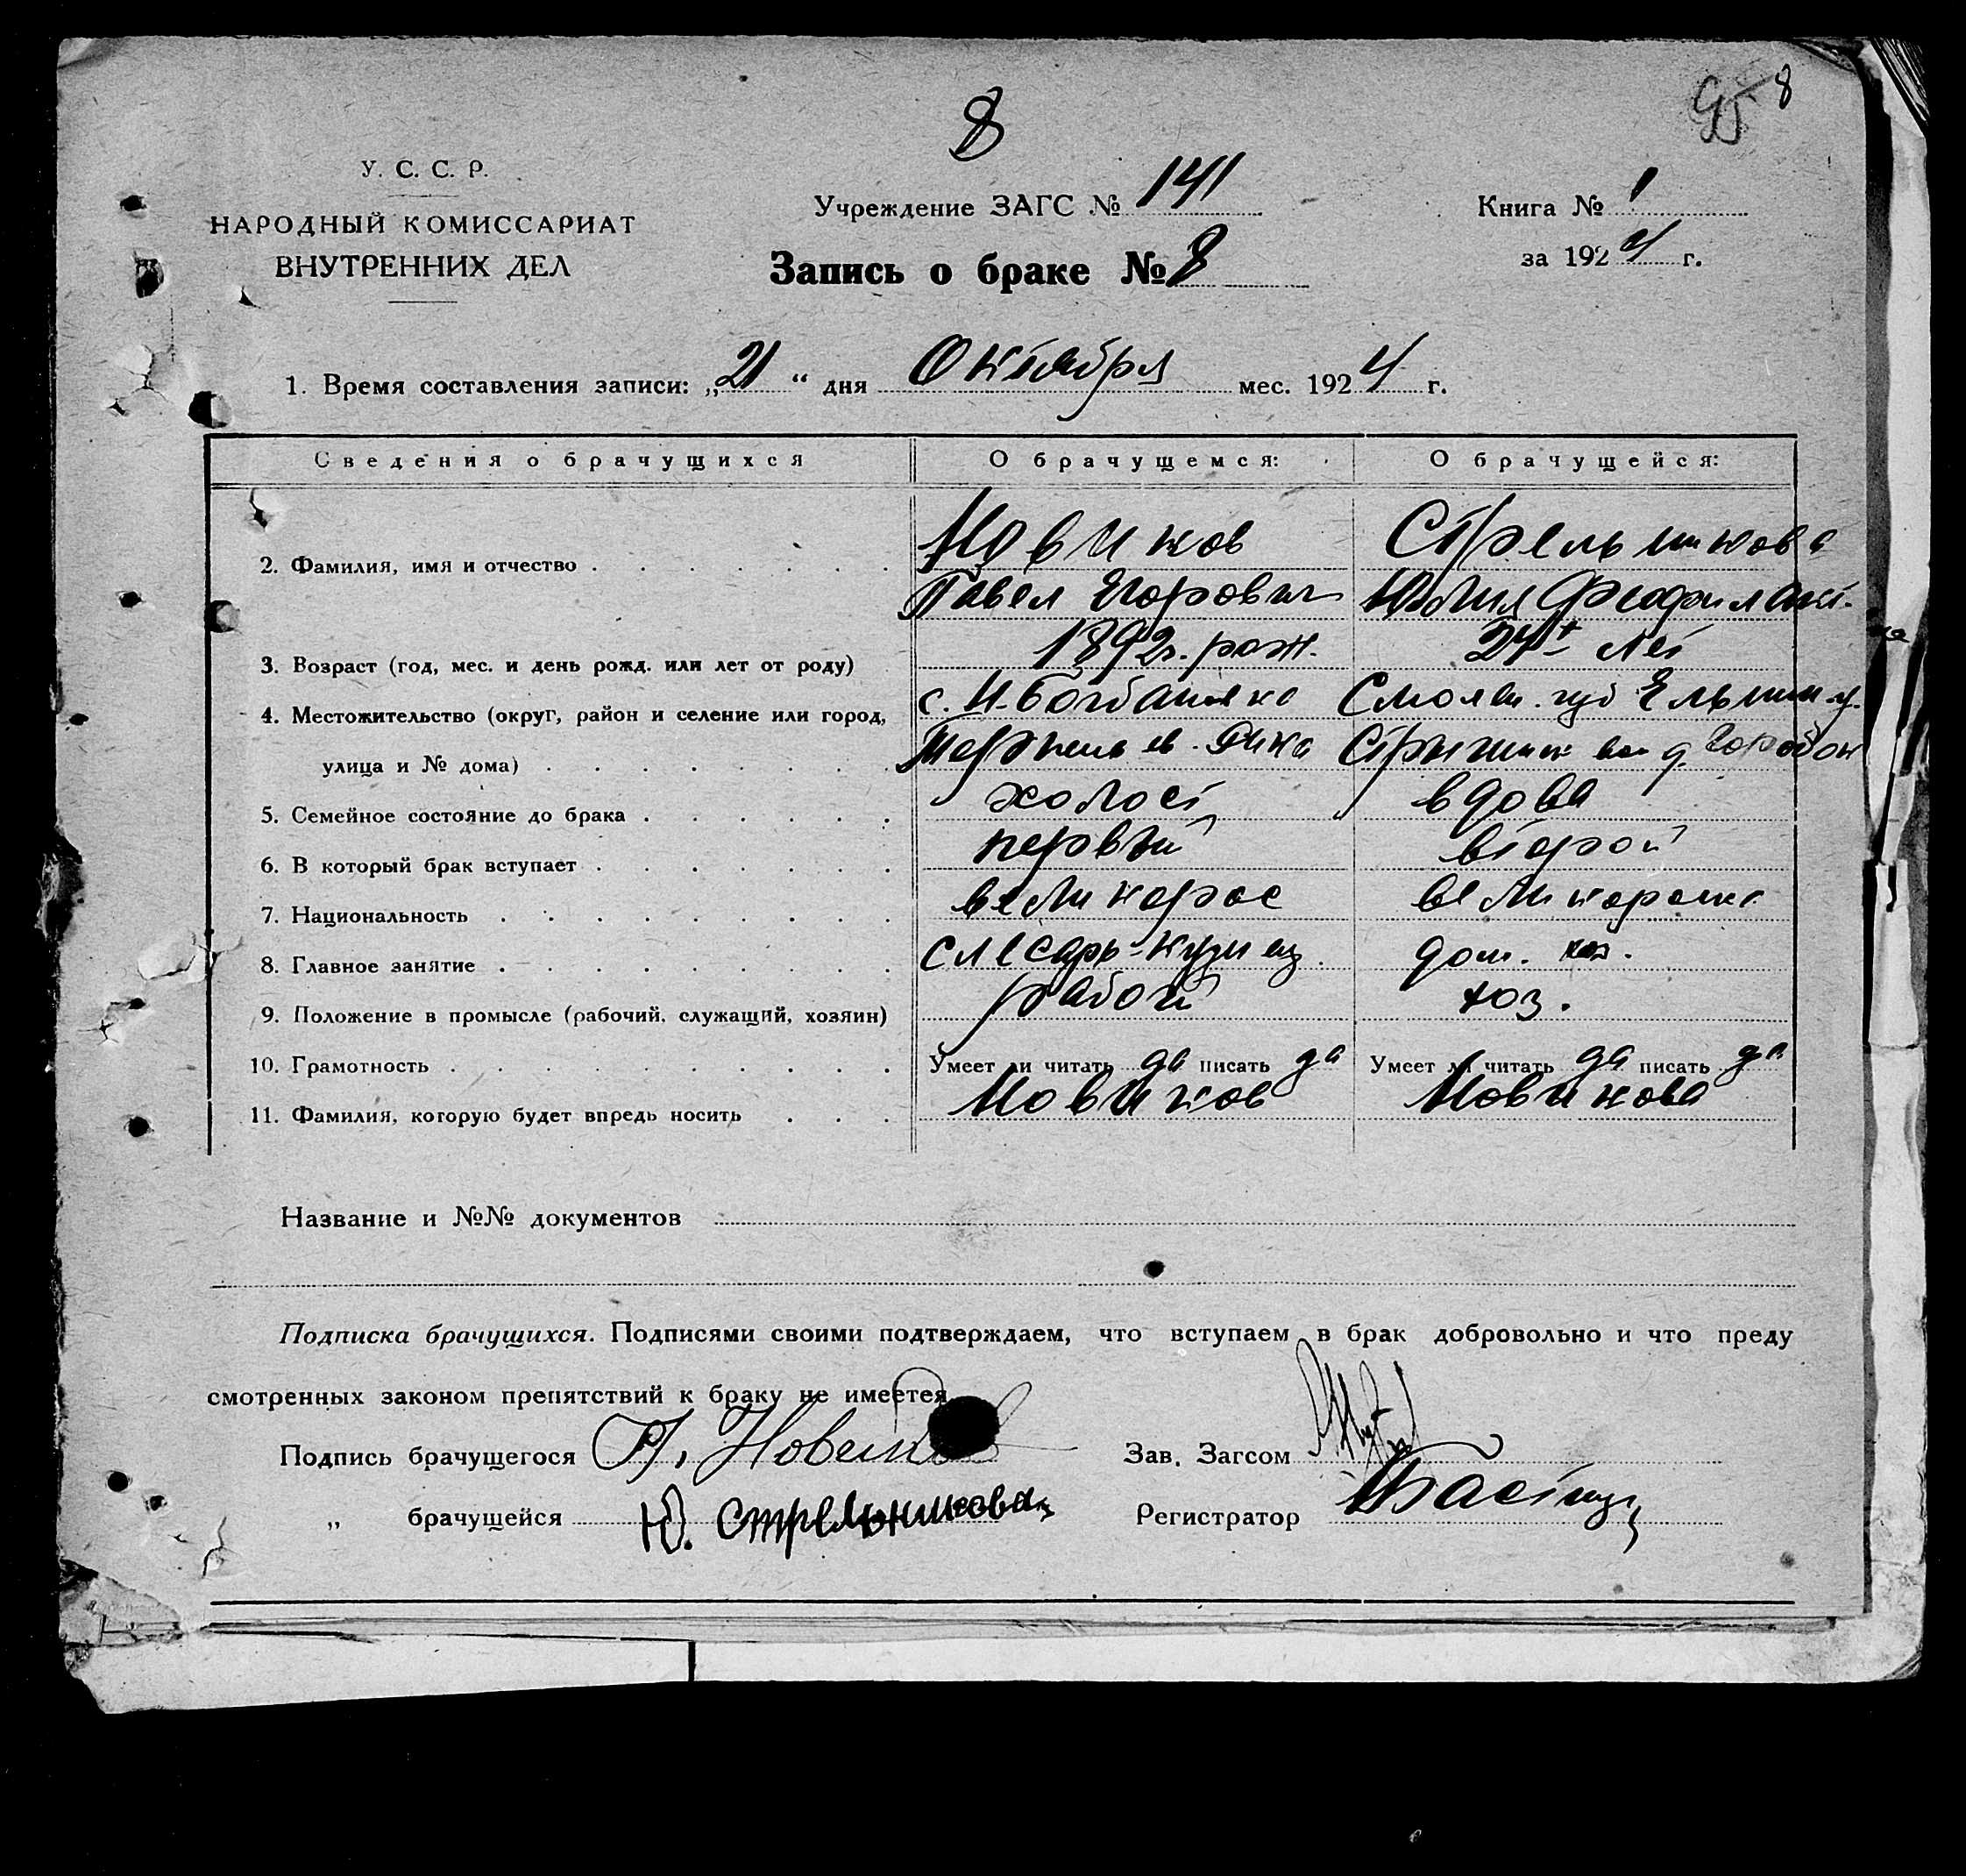 8
95 8
У. С. С. Р.
НАРОДНЫЙ КОМИССАРИАТ
ВНУТРЕННИХ ДЕЛ
Учреждение ЗАГС № 141
Запись о браке № 8
Книга № 1
за 1924 г.
1. Время составления записи: „21“ дня Октября мес. 1924 г.
Сведения о брачущихся О брачущемся: О брачущейся:
2. Фамилия, имя и отчество Новиков Стрельникова
Павел Егорович Юлия Феофилакт.
3. Возраст (год, мес. и день рожд. или лет от роду) 1892 г. рож. 24 лет
4. Местожительство (округ, район и селение или город, с. Смолен. губ Ельнин. у.
улица и № дома) д.
5. Семейное состояние до брака холост вдова
6. В который брак вступает первый второй
7. Национальность великорос великороска
8. Главное занятие слесарь-кузнец дом. хоз.
9. Положение в промысле (рабочий, служащий, хозяин) рабочий хоз.
10. Грамотность Умеет ли читать да писать да Умеет ли читать да писать да
11. Фамилия, которую будет впредь носить Новиков Новикова
Название и №№ документов
Подписка брачущихся. Подписями своими подтверждаем, что вступаем в брак добровольно и что преду
смотренных законом препятствий к браку не имеется
Подпись брачущегося П. Новиков Зав. Загсом
„ брачущейся Ю. Стрельникова Регистратор